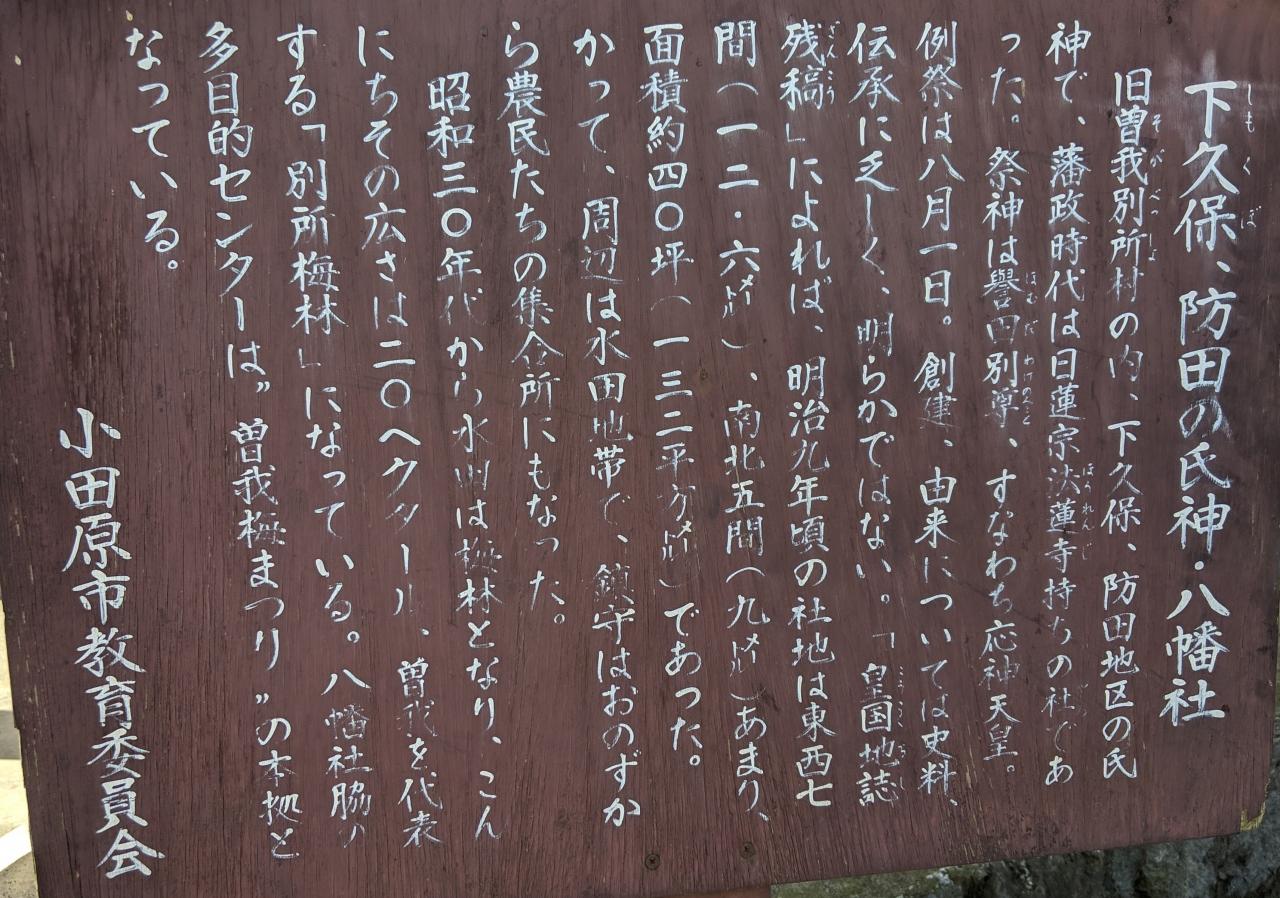 下久保、防田の氏神・八幡社
旧曽我別所村の内、下久保、防田地区の氏
神で、藩政時代は日蓮宗法蓮寺持ちの社であ
った。祭神は譽田別尊、すなわち応神天皇。
例祭は八月一日。創建、由来については史料、
伝承に乏しく、明らかではない。「皇国地誌
残稿」によれば、明治九年頃の社地は東西七
間(一二・六メートル)、南北五間(九メートル)あまり、
面積約四〇坪(一三二平方メートル)であった。
かって、周辺は水田地帯で、鎮守はおのずか
ら農民たちの集会所にもなった。
昭和三〇年代から水田は梅林となり、こん
にちその広さは二〇ヘクタール、曽我を代表
する「別所梅林」になっている。八幡社脇の
多目的センターは〃曽我梅まつり〃の本拠と
なっている。
小田原市教育委員会